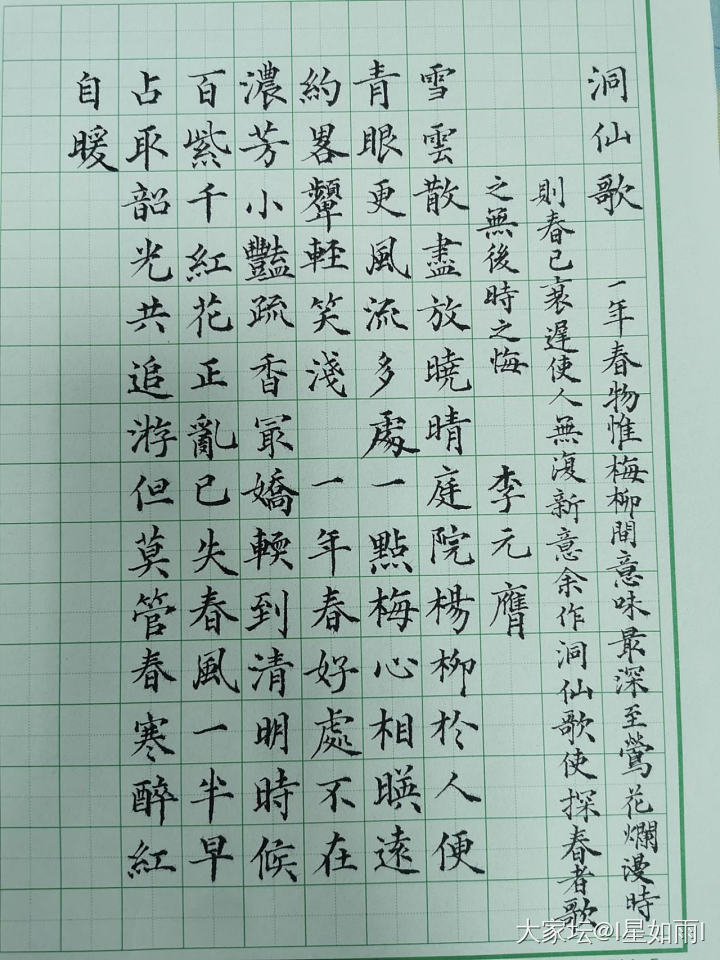 洞仙歌 一年春物惟梅柳間意味最深至鶯花爛漫時
則春已衰遲使人無復新意余作洞仙歌使探春者歌
之無後時之悔 李元膺
雪雲散盡放曉晴庭院楊柳於人便
青眼更風流多處一點梅心相暎遠
約畧顰輕笑淺 一年春好處不在
濃芳小豔疏香冣嬌輭到清明時候
百紫千紅花正亂已失春風一半早
占取韶光共追游但莫管春寒醉紅
自暖
大家坛@I星如雨I